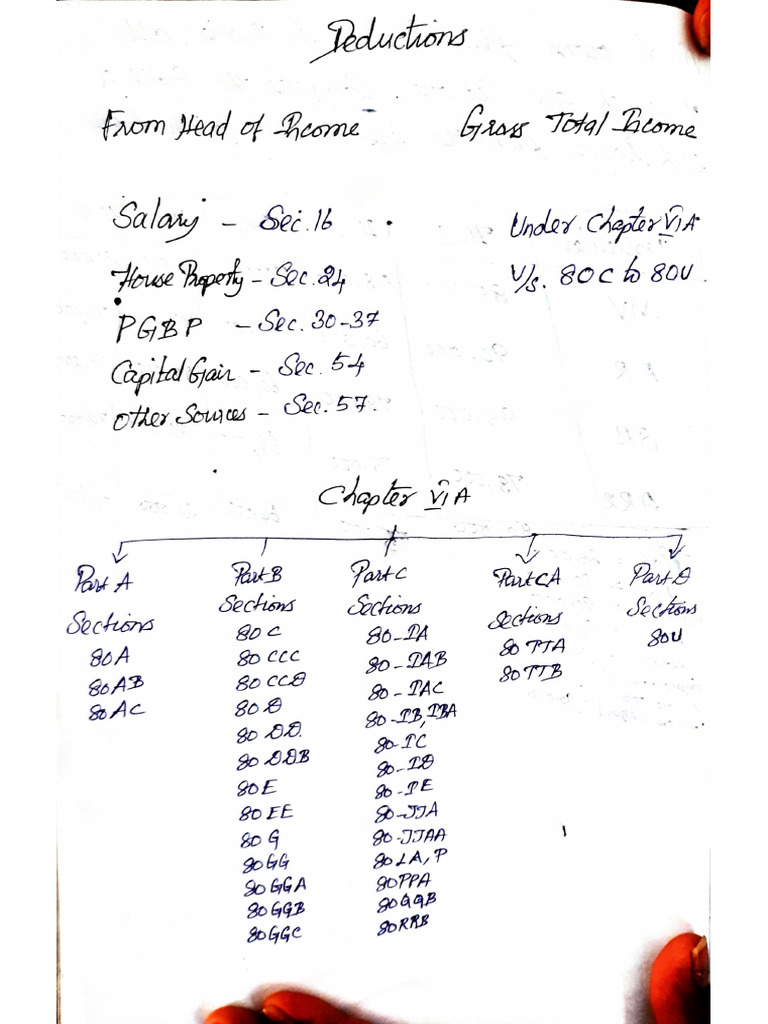 Deductions
From Head of Income
Gross Total Income
Salary - Sec. 16
House Property - Sec. 24
PGBP - Sec. 30-37
Capital Gain - Sec. 54
Other Sources - Sec. 57.
Under Chapter VIA
U/s. 80C to 80U.
Chapter VIA
Part A
Sections
80A
80AB
80AC
Part B
Sections
80C
80CCC
80CCD
80D
80DD.
80DDB
80E
80EE
80G
80GG
80GGA
80GGB
80GGC
Part C
Sections
80-IA
80-IAB
80-IAC
80-IB, IBA
80-IC
80-ID
80-IE
80-JJA
80-JJAA
80LA, P
80PPA
80QQB
80RRB
Part CA
Sections
80TTA
80TTB
Part D
Sections
80U